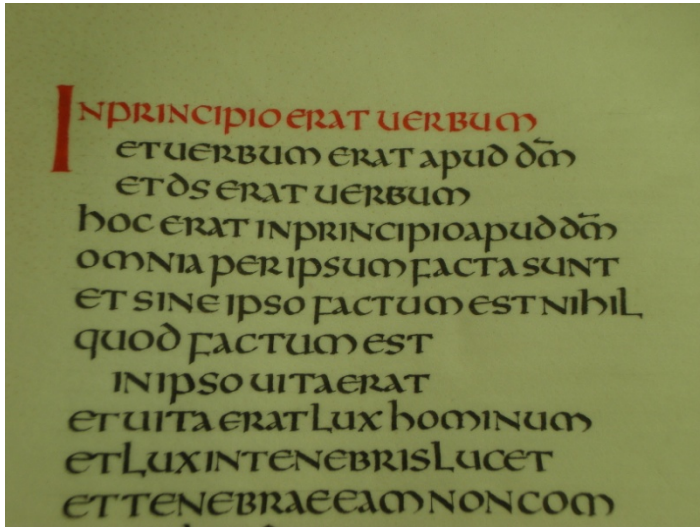 INPRINCIPIO ERAT UERBUM
ET UERBUM ERAT APUD DM̄
ET DS ERAT UERBUM
HOC ERAT INPRINCIPIOAPUDDM̄
OMNIA PER IPSUM FACTA SUNT
ET SINE IPSO FACTUM EST NIHIL
QUOD FACTUM EST
IN IPSO UITAERAT
ET UITA ERAT LUX HOMINUM
ETLUXINTENEBRISLUCET
ETTENEBRAEEAMNONCOM